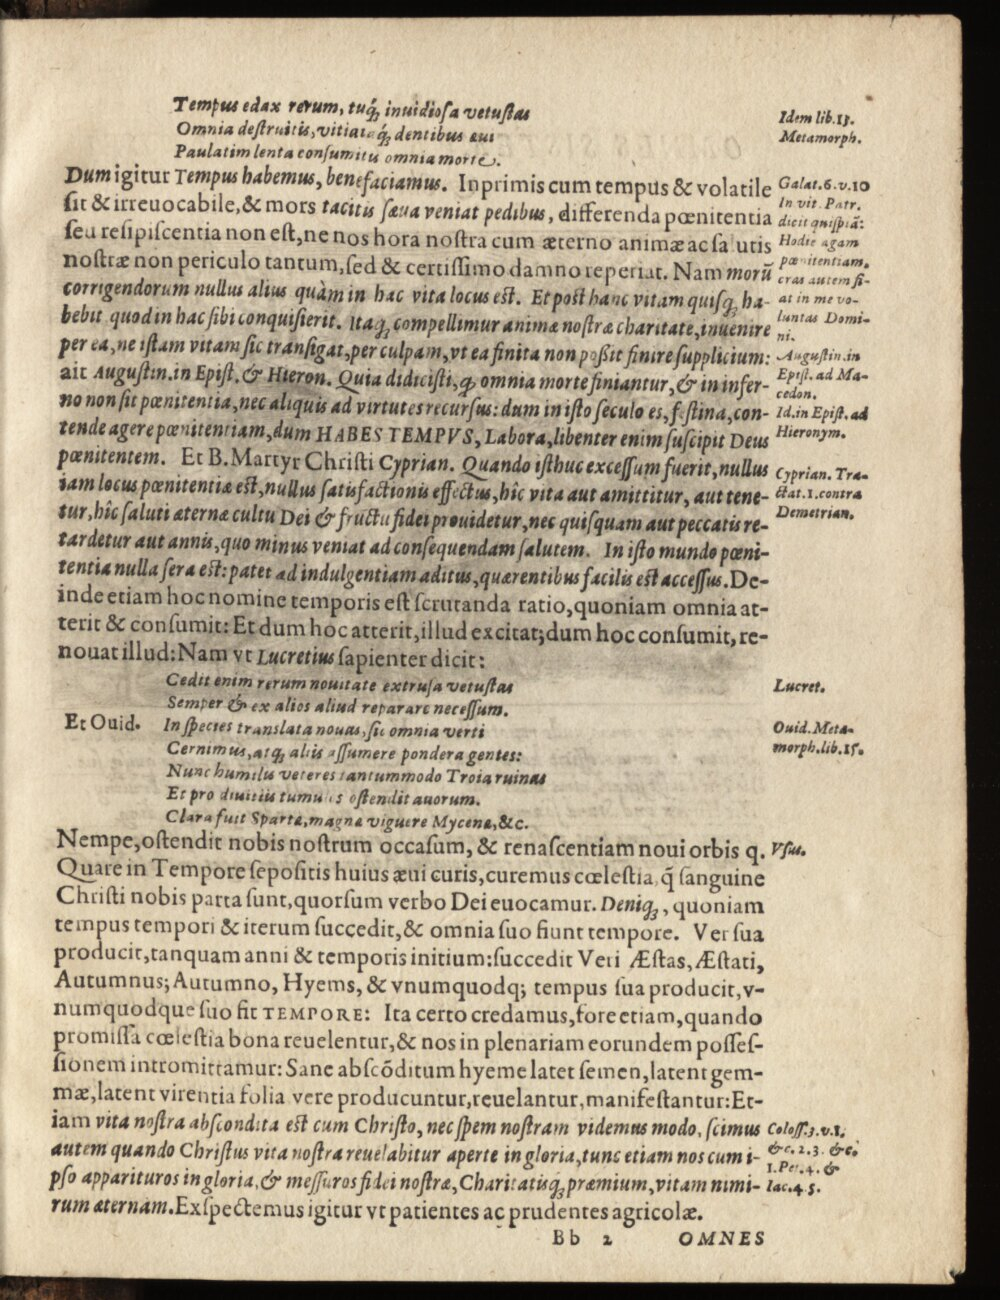 Tempus edax rerum, tuq́; inuidiosa vetustas
Omnia destruitis, vitiataq́; dentibus æui
Paulatim lenta consumitis omnia morte.
Idem lib. 15.
Metamorph.
Dum igitur Tempus habemus, benefaciamus. Inprimis cum tempus & volatile
sit & irreuocabile, & mors tacitis sæua veniat pedibus, differenda pœnitentia
seu resipiscentia non est, ne nos hora nostra cum æterno animæ ac salutis
nostræ non periculo tantum, sed & certissimo damno reperiat. Nam morũ
corrigendorum nullus alius quàm in hac vita locus est. Et post hanc vitam quisq; ha-
bebit quod in hac sibi conquisierit. Itaq; compellimur animæ nostræ charitate, inuenire
per ea, ne istam vitam sic transigat, per culpam, vt ea finita non poßit finire supplicium:
ait Augustin. in Epist. & Hieron. Quia didicisti, q; omnia morte finiantur, & in infer-
no non sit pœnitentia, nec aliquis ad virtutes recursus: dum in isto seculo es, festina, con-
tende agere pœnitentiam, dum HABES TEMPVS, Labora, libenter enim suscipit Deus
pœnitentem. Et B. Martyr Christi Cyprian. Quando isthuc excessum fuerit, nullus
iam locus pœnitentiæ est, nullus satisfactionis effectus, hîc vita aut amittitur, aut tene-
tur, hîc saluti æternæ cultu Dei & fructu fidei prouidetur, nec quisquam aut peccatis re-
tardetur aut annis, quo minus veniat ad consequendam salutem. In isto mundo pœni-
tentia nulla sera est: patet ad indulgentiam aditus, quærentibus facilis est accessus. De-
inde etiam hoc nomine temporis est scrutanda ratio, quoniam omnia at-
terit & consumit: Et dum hoc atterit, illud excitat; dum hoc consumit, re-
nouat illud: Nam vt Lucretius sapienter dicit:
Galat. 6. v. 10
In vit. Patr.
dicit quispiã:
Hodie agam
pœnitentiam.
cras autem fi-
at in me vo-
luntas Domi-
ni.
Augustin. in
Epist. ad Ma-
cedon.
Id. in Epist. ad
Hieronym.
Cyprian. Tra-
ctat. 1. contra
Demetrian.
Cedit enim rerum nouitate extrusa vetustas
Semper & ex alios aliud reparare necessum.
Lucret.
Et Ouid. In species translata nouas, sic omnia verti
Cernimus, atq; aliis assumere pondera gentes:
Nunc humilis veteres tantummodo Troia ruinas
Et pro diuitiis tumulos ostendit auorum.
Clara fuit Sparta, magnæ viguere Mycenæ, &c.
Ouid. Meta-
morph. lib. 15.
Nempe, ostendit nobis nostrum occasum, & renascentiam noui orbis q.
Quare in Tempore sepositis huius æui curis, curemus cœlestia, q̃ sanguine
Christi nobis parta sunt, quorsum verbo Dei euocamur. Deniq;, quoniam
tempus tempori & iterum succedit, & omnia suo fiunt tempore. Ver sua
producit, tanquam anni & temporis initium: succedit Veri Æstas, Æstati,
Autumnus; Autumno, Hyems, & vnumquodq; tempus sua producit, v-
numquodque suo fit TEMPORE: Ita certo credamus, fore etiam, quando
promissa cœlestia bona reuelentur, & nos in plenariam eorundem posses-
sionem intromittamur: Sane abscõditum hyeme latet semen, latent gem-
mæ, latent virentia folia vere producuntur, reuelantur, manifestantur: Et-
iam vita nostra abscondita est cum Christo, nec spem nostram videmus modo, scimus
autem quando Christus vita nostra reuelabitur aperte in gloria, tunc etiam nos cum i-
pso apparituros in gloria, & messuros fidei nostræ, Charitatisq; præmium, vitam nimi-
rum æternam. Exspectemus igitur vt patientes ac prudentes agricolæ.
Vsus.
Coloss. 3. v. 1.
&c. 2. 3. &c.
1. Pet. 4. &
Iac. 4. 5.
Bb 2 OMNES